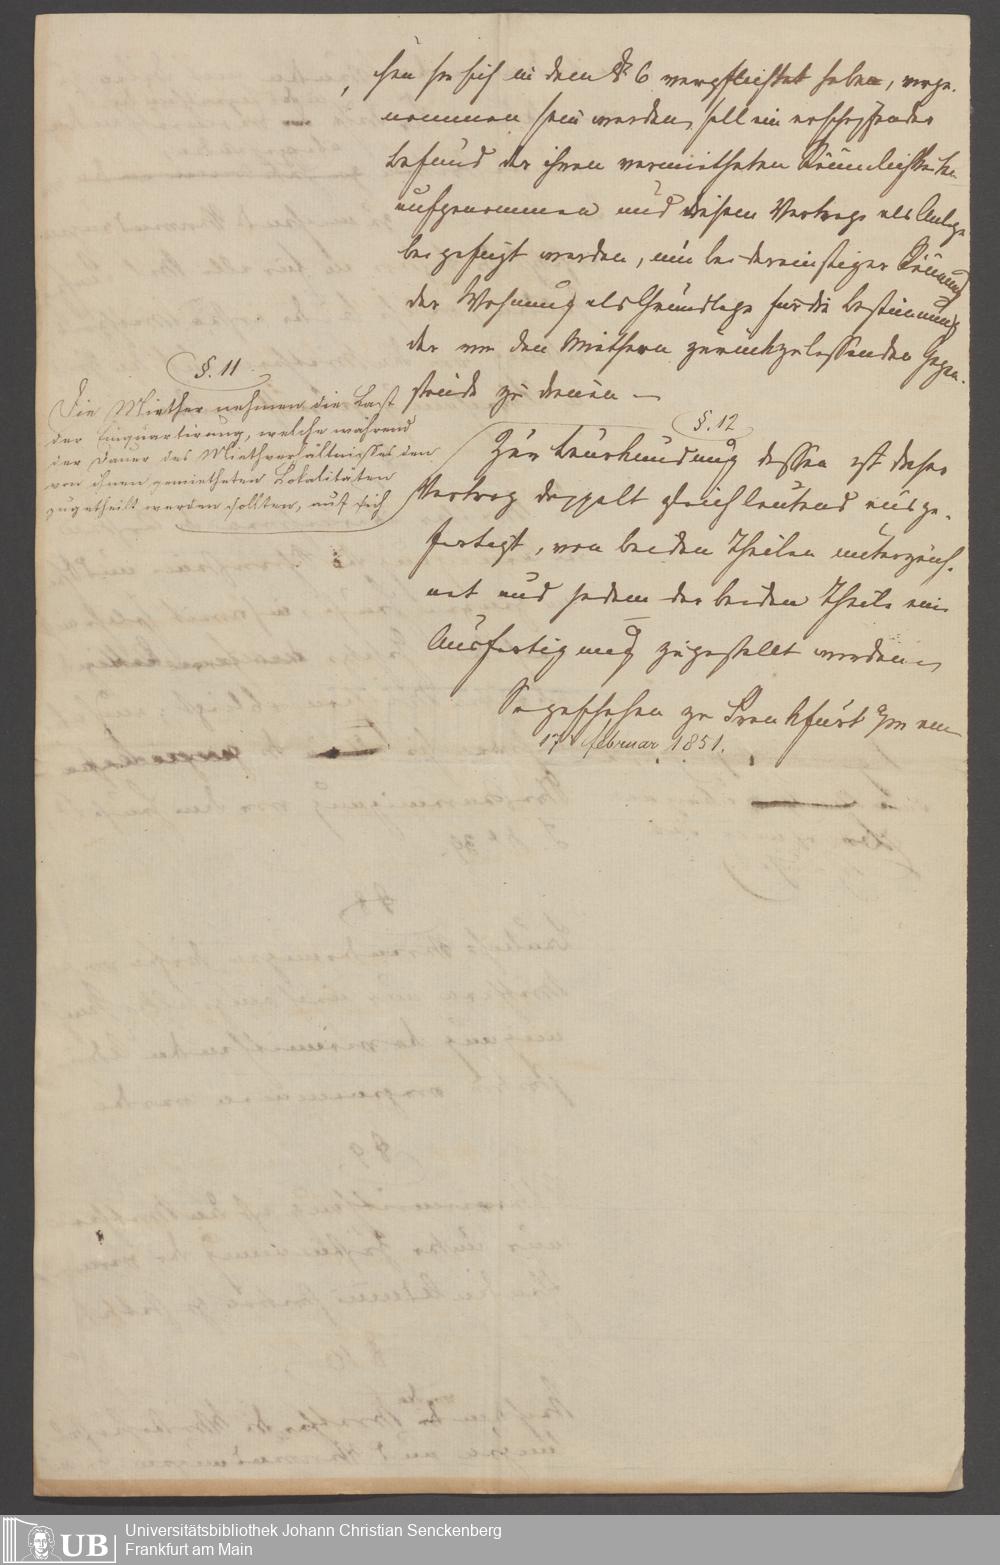 sen sie sich in dem §. 6 verpflichtet haben, vorge-
nommen sein werden, soll ein erschöpfender
Befund der ihnen vermietheten Räumlichkeiten
aufgenommen und diesem Vertrage als Anlage
beigefügt werden, um bei dereinstiger Räumung
der Wohnung als Grundlage für die Bestimmung
der von den Miethern zurückzulassenden Gegen-
stände zu dienen
§. 11
Die Miether nehmen die Last
der Einquartirung, welche während
der Dauer des Miethverhältnisses den
von ihnen gemietheten Lokalitäten
zugetheilt werden sollten, auf sich
§. 12
Zur Beurkundung dessen ist dieser
Vertrag doppelt gleichlautend ausge-
fertigt, von beiden Theilen unterzeich-
net und jedem der beiden Theile eine
Ausfertigung zugestellt worden
So geschehen zu Frankfurt a/m am
17 februar 1851.
Universitätsbibliothek Johann Christian Senckenberg
Frankfurt am Main
UB